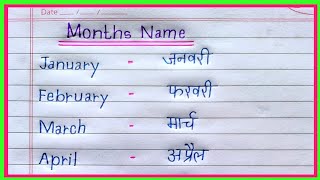 Date ___/___/___
Months Name
January - जनवरी
February - फरवरी
March - मार्च
April - अप्रैल